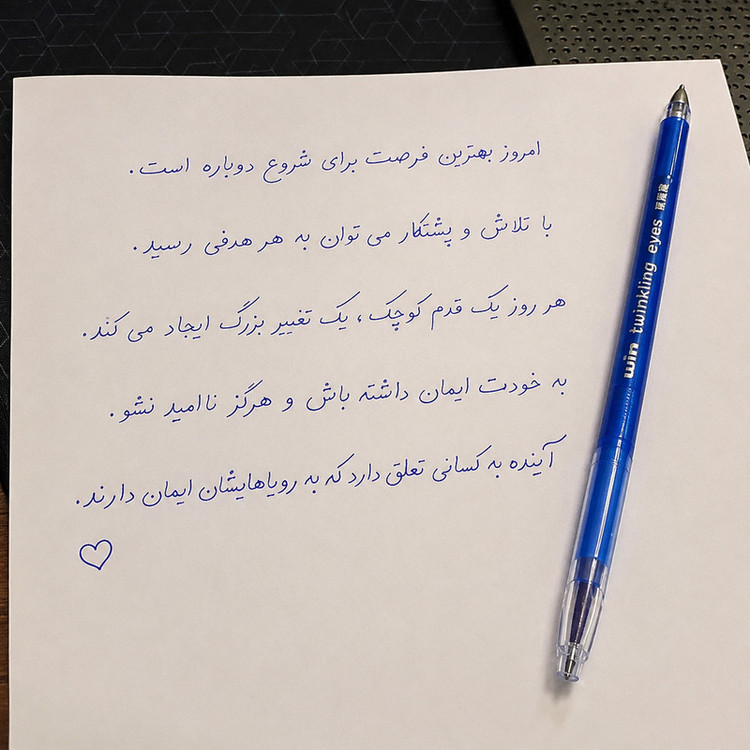 امروز بهترین فرصت برای شروع دوباره است.
با تلاش و پشتکار می توان به هر هدفی رسید.
هر روز یک قدم کوچک، یک تغییر بزرگ ایجاد می کند.
به خودت ایمان داشته باش و هرگز ناامید نشو.
آینده به کسانی تعلق دارد که به رویاهایشان ایمان دارند.
win twinkling eyes